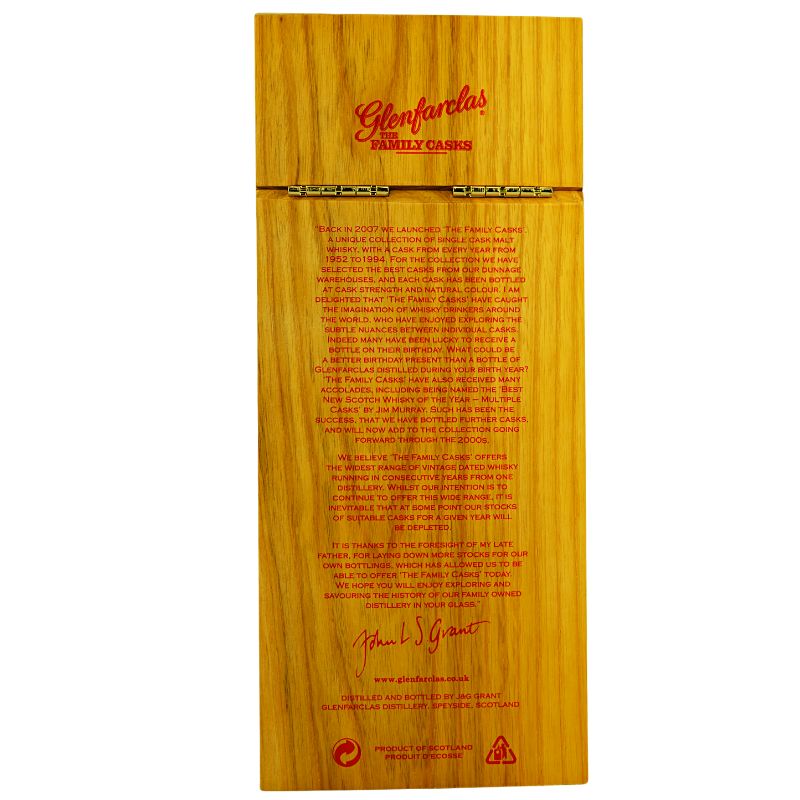 Glenfarclas®
THE
FAMILY CASKS
"BACK IN 2007 WE LAUNCHED 'THE FAMILY CASKS',
A UNIQUE COLLECTION OF SINGLE CASK MALT
WHISKY, WITH A CASK FROM EVERY YEAR FROM
1952 TO1994. FOR THE COLLECTION WE HAVE
SELECTED THE BEST CASKS FROM OUR DUNNAGE
WAREHOUSES, AND EACH CASK HAS BEEN BOTTLED
AT CASK STRENGTH AND NATURAL COLOUR. I AM
DELIGHTED THAT 'THE FAMILY CASKS' HAVE CAUGHT
THE IMAGINATION OF WHISKY DRINKERS AROUND
THE WORLD, WHO HAVE ENJOYED EXPLORING THE
SUBTLE NUANCES BETWEEN INDIVIDUAL CASKS.
INDEED MANY HAVE BEEN LUCKY TO RECEIVE A
BOTTLE ON THEIR BIRTHDAY. WHAT COULD BE
A BETTER BIRTHDAY PRESENT THAN A BOTTLE OF
GLENFARCLAS DISTILLED DURING YOUR BIRTH YEAR?
'THE FAMILY CASKS' HAVE ALSO RECEIVED MANY
ACCOLADES, INCLUDING BEING NAMED THE 'BEST
NEW SCOTCH WHISKY OF THE YEAR – MULTIPLE
CASKS' BY JIM MURRAY. SUCH HAS BEEN THE
SUCCESS, THAT WE HAVE BOTTLED FURTHER CASKS,
AND WILL NOW ADD TO THE COLLECTION GOING
FORWARD THROUGH THE 2000S.
WE BELIEVE 'THE FAMILY CASKS' OFFERS
THE WIDEST RANGE OF VINTAGE DATED WHISKY
RUNNING IN CONSECUTIVE YEARS FROM ONE
DISTILLERY. WHILST OUR INTENTION IS TO
CONTINUE TO OFFER THIS WIDE RANGE, IT IS
INEVITABLE THAT AT SOME POINT OUR STOCKS
OF SUITABLE CASKS FOR A GIVEN YEAR WILL
BE DEPLETED.
IT IS THANKS TO THE FORESIGHT OF MY LATE
FATHER, FOR LAYING DOWN MORE STOCKS FOR OUR
OWN BOTTLINGS, WHICH HAS ALLOWED US TO BE
ABLE TO OFFER 'THE FAMILY CASKS' TODAY.
WE HOPE YOU WILL ENJOY EXPLORING AND
SAVOURING THE HISTORY OF OUR FAMILY OWNED
DISTILLERY IN YOUR GLASS."
John L S Grant
www.glenfarclas.co.uk
DISTILLED AND BOTTLED BY J&G GRANT
GLENFARCLAS DISTILLERY, SPEYSIDE, SCOTLAND
PRODUCT OF SCOTLAND
PRODUIT D'ECOSSE